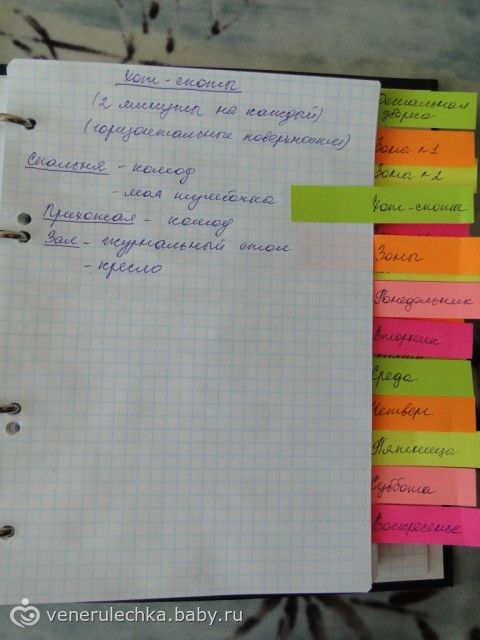 Хот-споты
(2 минуты на каждый)
(горизонтальные поверхности)
Спальня - комод
- моя тумбочка
Прихожая - комод
Зал - журнальный стол
- кресло
уборка
Зона №1
Зона №2
Хот-споты
Зоны
Понедельник
Вторник
Среда
Четверг
Пятница
Суббота
Воскресенье
venerulechka.baby.ru